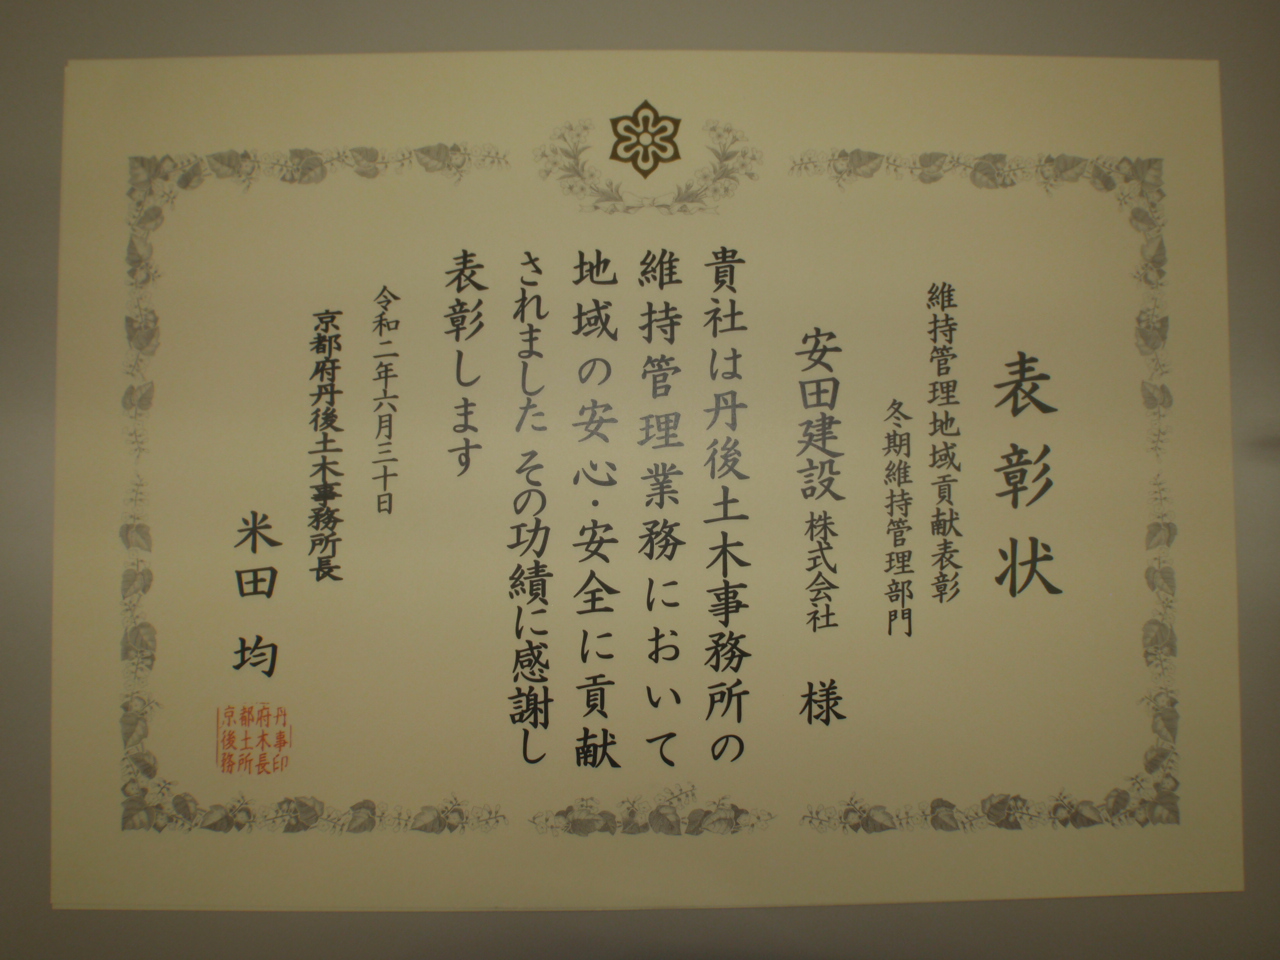 表彰状
維持管理地域貢献表彰
冬期維持管理部門
安田建設 株式会社 様
貴社は丹後土木事務所の
維持管理業務において
地域の安心・安全に貢献
されました その功績に感謝し
表彰します
令和二年六月三十日
京都府丹後土木事務所長
米田 均
丹事印
府木長
都土所
京後務